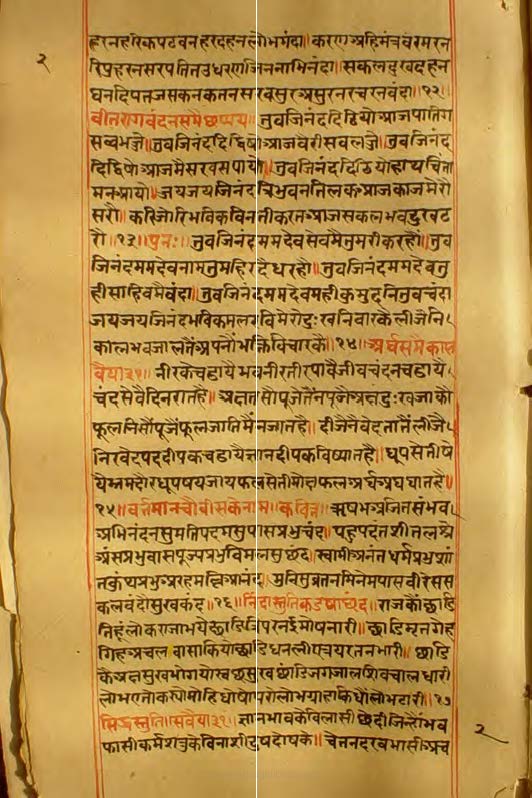 हरनहरिकपटवनहरदहनलोभमंदा॥ करणअहिमंचवरमरन
रिपुहरनसरपतितउधरणजिननाभिनंदा॥ सकलदुखदहन
घनदिपतजसकनकतनसरवसुरअसुरनरचरनवंदा॥१२॥
वीतरागवंदनसमैछप्पय॥ तुवजिनंददिठियोआजपातिग
सवभजे॥ तुवजिनंददिठियोआजवैरीसवलजे॥ तुवजिनंद
दिठियोआजमैसरवसपायो॥ तुवजिनंददिठियोहाथचिंता
मनआयो॥ जयजयजिनंदत्रिभुवनतिलकआजकाजमेरो
सरौ॥ करिजोरिभविकविनतीकरतआजसकलभवदुखट
रौ॥१३॥पुनः॥ तुवजिनंदममदेवसेवमैतुमरीकरहौं॥ तुव
जिनंदममदेवनामतुमहिरदैधरहौं॥ तुवजिनंदममदेवतु
हीसाहिवमैवंदा॥ तुवजिनंदममदेवमहीकुमुदनितुवचंदा
जयजयजिनंदभविकमलरविमेरोदुःखनिवारकैलीजैनि
कालभवजालतैंअपनोभक्तिविचारकै॥१४॥अर्घसमैकास
वैया३१॥ नीरकेचढायेभवनीरतीरपावैजीवचंदनचढाये
चंदसेवैदिनरातहै॥ अक्षतसौंपूजतैंनपूजेअक्षदुःखजाकौ
फूलनिसौंपूजैंफूलजातिमैंनजातहै॥ दीजैनैवेदतातैंलीजै
निरवेदपददीपकचढायैज्ञानदीपकविख्यातहै॥ धूपसेतीषे
येभ्रमदौरधूपषयजायफलसेतीमोक्षफलअर्घअघघातहै॥
१५॥वर्त्तमानचौवीसकेनाम॥कवित्त॥ ऋषभअजितसंभव
अभिनंदनसुमतिपदमसुपासप्रभुचंद॥ पहुपदंतशीतलश्रे
अंसप्रभुवासपूज्यप्रभुविमलसुछंद॥ स्वामीअनंतधर्मप्रभुशां
तकुंथप्रभुअरहमल्लिआनंद॥ मुनिसुव्रतनमिनेमपासवीरेसस
कलवंदौसुखकंद॥१६॥निंदास्तुतिकडखाछंद॥ राजकोंछाडि
तिहंलोकराजाभयेछाडित्रियरनईमोषनारी॥ छाडिमृतगेह
गिहअचलवासाकियोछाडिधनलीएत्रयरतनभारी॥ छाडि
कैअक्षसुखभोगयोस्वछसुखछांडिजगजालशिवचालधारी
लोभएतोकस्योमोहिधोषापरोलोभयाहीकधौलोभटारी॥१७
सिद्धस्तुति॥सवैया३१॥ ज्ञानभावकेविलासीछेदीजिन्होंभव
फासीकर्मशत्रुकेविनाशीदुषदाषके॥ चेतनदरवभासीअच
२
२